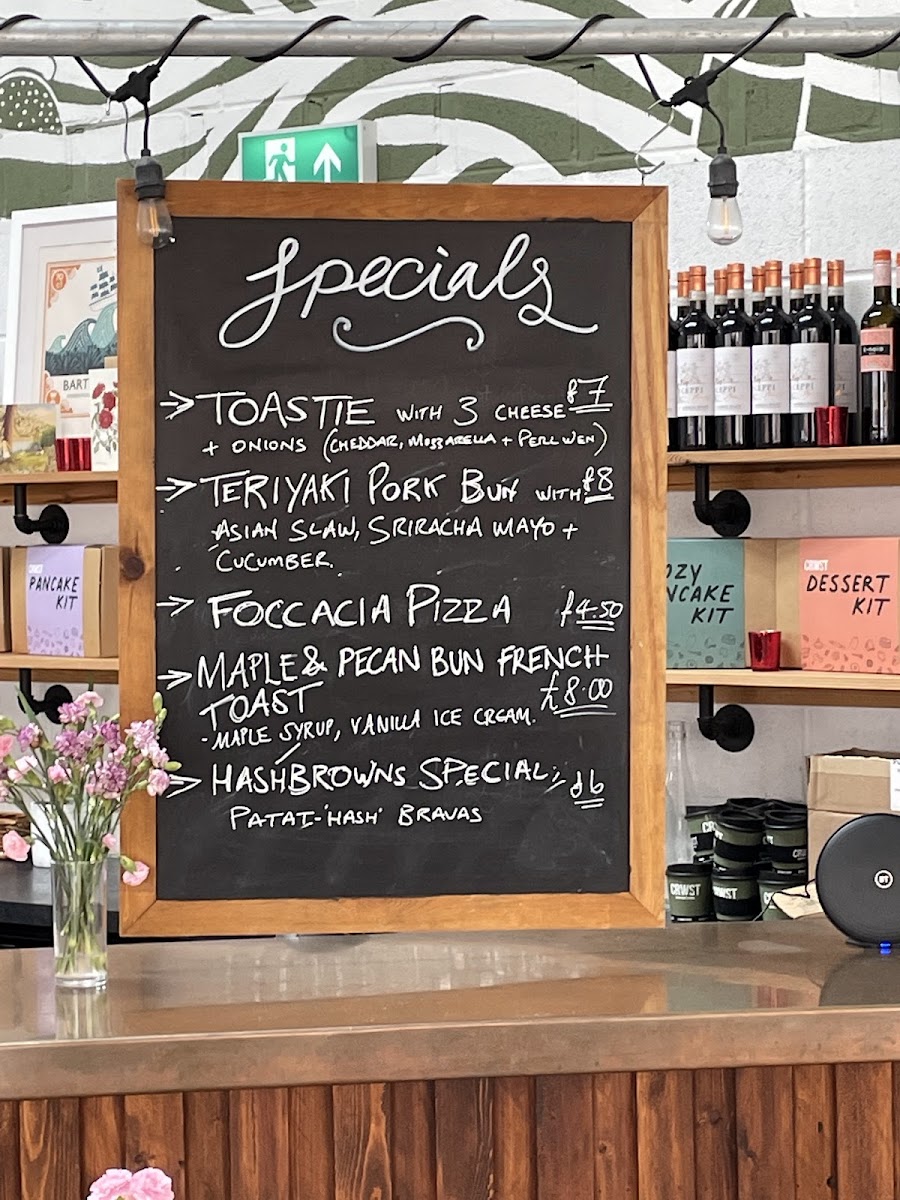 Specials
→ TOASTIE WITH 3 CHEESE £7
+ ONIONS (CHEDDAR, MOZZARELLA + PERL WEN)
→ TERIYAKI PORK BUN WITH £8
ASIAN SLAW, SRIRACHA MAYO +
CUCUMBER.
→ FOCCACIA PIZZA £4.50
→ MAPLE & PECAN BUN FRENCH
TOAST £8.00
- MAPLE SYRUP, VANILLA ICE CREAM.
→ HASHBROWNS SPECIAL; £6
PATAT-'HASH' BRAVAS
BART
CRWST
PANCAKE
KIT
OZY
NCAKE
KIT
CRWST
DESSERT
KIT
CRWST
CRWST
BT